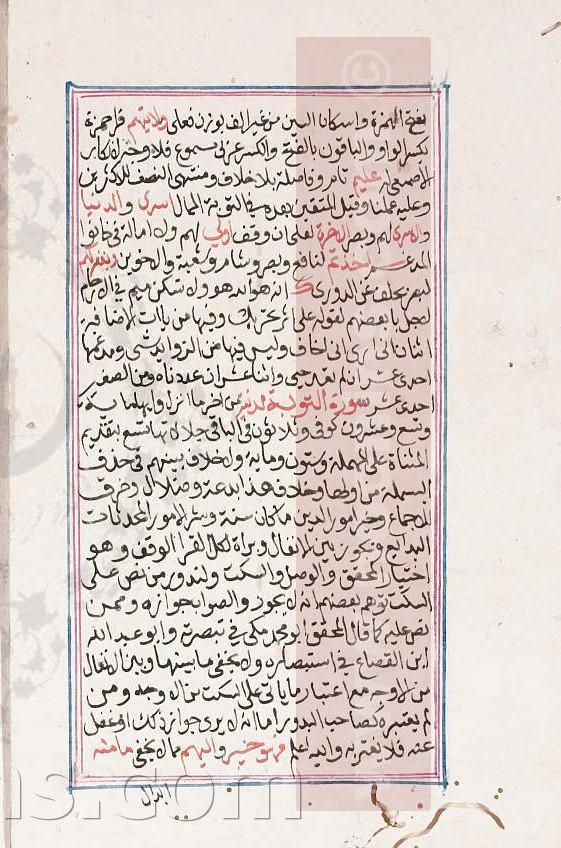 بفتح الهمزة واسكان السين من غير الف بوزن فعلى ولايتهم قرا حمزة
بكسر الواو والباقون بالفتح والكسر عربي مسموع فلا وجه لانكار
الاصمعي له عليم تام وفاصلة بلا خلاف ومنتهى النصف للاكثرين
وعليه عملنا وقيل المتقين بعده في التوبة الممال اسرى والدنيا
والاسرى لهم وبصر الاخرة لعلي ان وقف اولى لهم ولا امالة في خانوا
المدغم اخذتم لنافع وبصر وشام وشعبة والاخوين ويغفر لكم
لبصر بخلف عن الدوري ك انه هو الله هو ولا تسكن ميم في الارحام
لاجل با بعضهم لقوله على اثر تحريك وفيها من ياءات الاضافة
اثنتان اني ارى اني اخاف وليس فيها من الزوائد شي ومدغمها
احدى عشر ان لم نعد حيي واثنا عشر ان عددناه ومن الصغير
احدى عشر سورة التوبة مدنية من اخر ما نزل وايها مائة
وتسع وعشرون كوفي وثلاثون في الباقي جلالاتها تسع بتقديم
المثناة على المهملة وستون ومائة ولا خلاف بينهم في حذف
البسملة من اولها وخلاف هذا بدعة وضلال وخرق
للاجماع وخير امور الدين ما كان سنة وشر الامور المحدثات
البدايع ويجوز بين الانفال وبراة لكل القرا الوقف وهو
اختيار المحقق والوصل والسكت ولندور من نص على
السكت توهم بعضهم انه لا يجوز والصواب جوازه وممن
نص عليه كما قال المحقق ابو محمد مكي في تبصرته وابو عبد الله
ابن القصاع في استبصاره ولا يخفى ما بينها وبين الانفال
من الاوجه مع اعتبار ما ياتي على السكت من الاوجه ومن
لم يعتبره كصاحب البدور اما انه لا يرى جواز ذلك او غفل
عنه فلا يغتر به والله اعلم فهو خير واليهم مما لا يخفى مامنه
ابدال